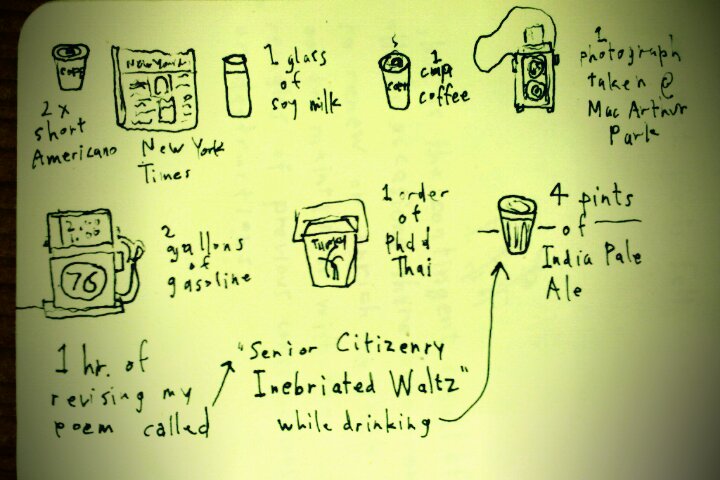 2 x
short
Americano
New York
New York
Times
1 glass
of
soy milk
1
cup
coffee
1
photograph
taken @
Mac Arthur
Park
76
2
gallons
of
gasoline
1 order
of
Phd d
Thai
4 pints
of
India Pale
Ale
1 hr. of
revising my
poem called
"Senior Citizenry
Inebriated Waltz"
while drinking